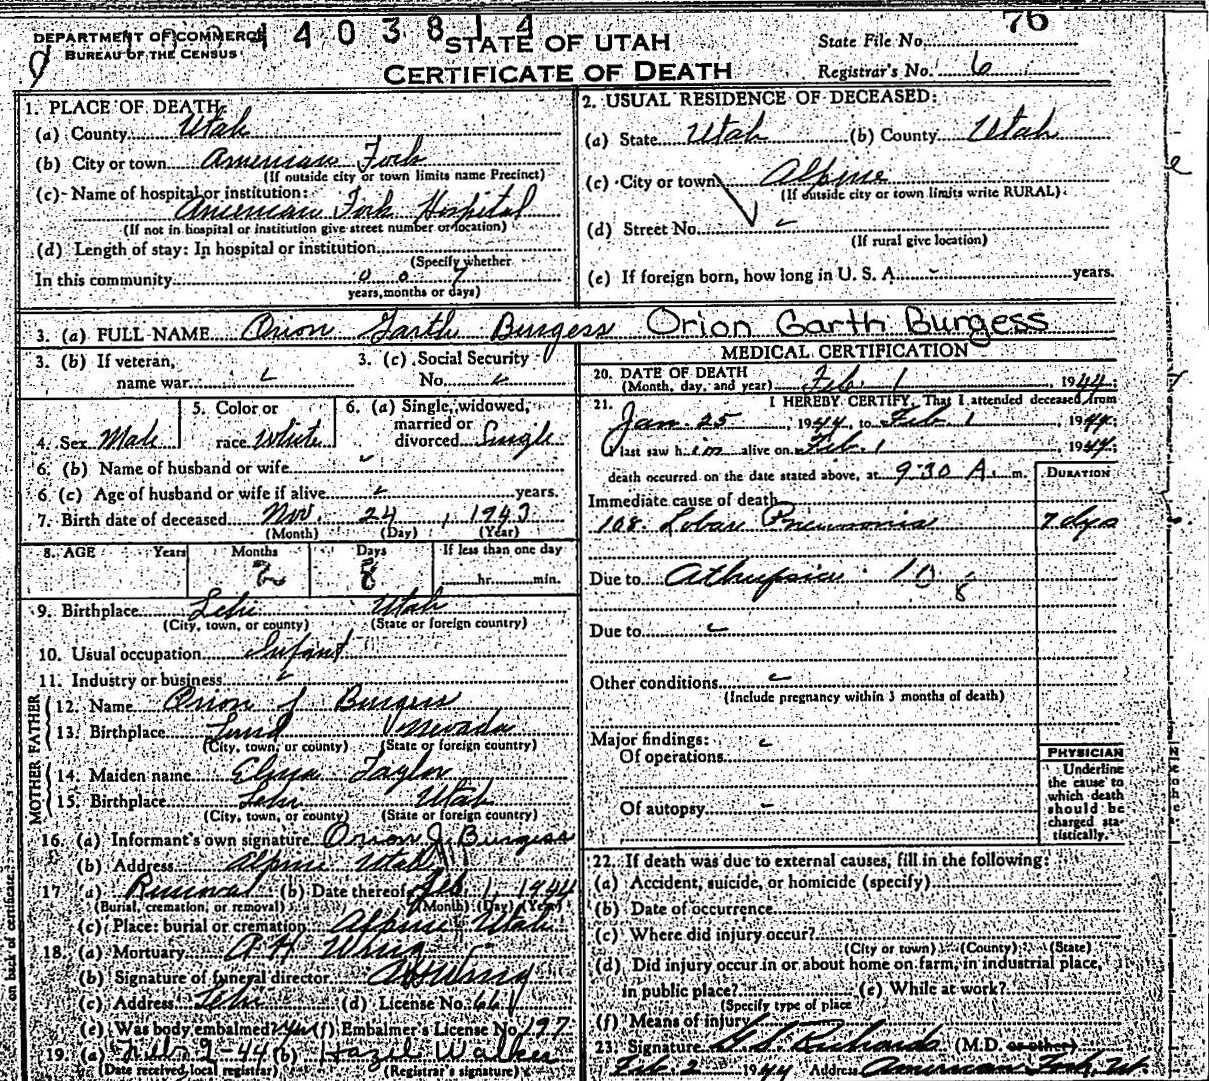 DEPARTMENT OF COMMERCE
BUREAU OF THE CENSUS
4 0 3 8 1 4
STATE OF UTAH
CERTIFICATE OF DEATH
State File No. 76
Registrar's No. 6
1. PLACE OF DEATH:
(a) County Utah
(b) City or town American Fork
(If outside city or town limits name Precinct)
(c) Name of hospital or institution:
American Fork Hospital
(If not in hospital or institution give street number or location)
(d) Length of stay: In hospital or institution
(Specify whether
In this community 0 0 7
years, months or days)
2. USUAL RESIDENCE OF DECEASED:
(a) State Utah (b) County Utah
(c) City or town Alpine
(If outside city or town limits write RURAL)
(d) Street No. -
(If rural give location)
(e) If foreign born, how long in U. S. A. - years.
3. (a) FULL NAME Orion Garth Burgess Orion Garth Burgess
3. (b) If veteran,
name war
3. (c) Social Security
No.
4. Sex Male
5. Color or
race White
6. (a) Single, widowed,
married or
divorced Single
6. (b) Name of husband or wife
6 (c) Age of husband or wife if alive years.
7. Birth date of deceased Nov. 24, 1943
(Month) (Day) (Year)
8. AGE Years Months Days If less than one day
2 8 hr. min.
9. Birthplace Lehi Utah
(City, town, or county) (State or foreign country)
10. Usual occupation Infant
11. Industry or business
FATHER
12. Name Orion J Burgess
13. Birthplace Lund Nevada
(City, town, or county) (State or foreign country)
MOTHER
14. Maiden name Taylor
15. Birthplace Lehi Utah
(City, town, or county) (State or foreign country)
16. (a) Informant's own signature Orion J. Burgess
(b) Address Alpine Utah
17 (a) Removal (b) Date thereof Feb 1 1944
(Burial, cremation, or removal) (Month) (Day) (Year)
(c) Place: burial or cremation Alpine Utah
18. (a) Mortuary A H Wing
(b) Signature of funeral director AH Wing
(c) Address Lehi (d) License No. 66
(e) Was body embalmed? Yes (f) Embalmer's License No. 197
19. (a) Feb 2-44 (b) Hazel Walker
(Date received local registrar) (Registrar's signature)
MEDICAL CERTIFICATION
20. DATE OF DEATH
(Month, day, and year) Feb. 1, 1944
21. I HEREBY CERTIFY, That I attended deceased from
Jan 25, 1944, to Feb 1 1944
I last saw him alive on Feb. 1, 1944
death occurred on the date stated above, at 9:30 A. m.
DURATION
Immediate cause of death
108. Lobar Pneumonia 7 dys
Due to Athrepsia 108
Due to
Other conditions
(Include pregnancy within 3 months of death)
Major findings:
Of operations
Of autopsy -
PHYSICIAN
Underline
the cause to
which death
should be
charged sta-
tistically.
22. If death was due to external causes, fill in the following:
(a) Accident, suicide, or homicide (specify)
(b) Date of occurrence
(c) Where did injury occur?
(City or town) (County) (State)
(d) Did injury occur in or about home on farm, in industrial place,
in public place? (e) While at work?
(Specify type of place
(f) Means of injury
23. Signature Richards (M.D. or other)
Feb. 2 1944 Address American Fork, Ut.
on back of certificate.